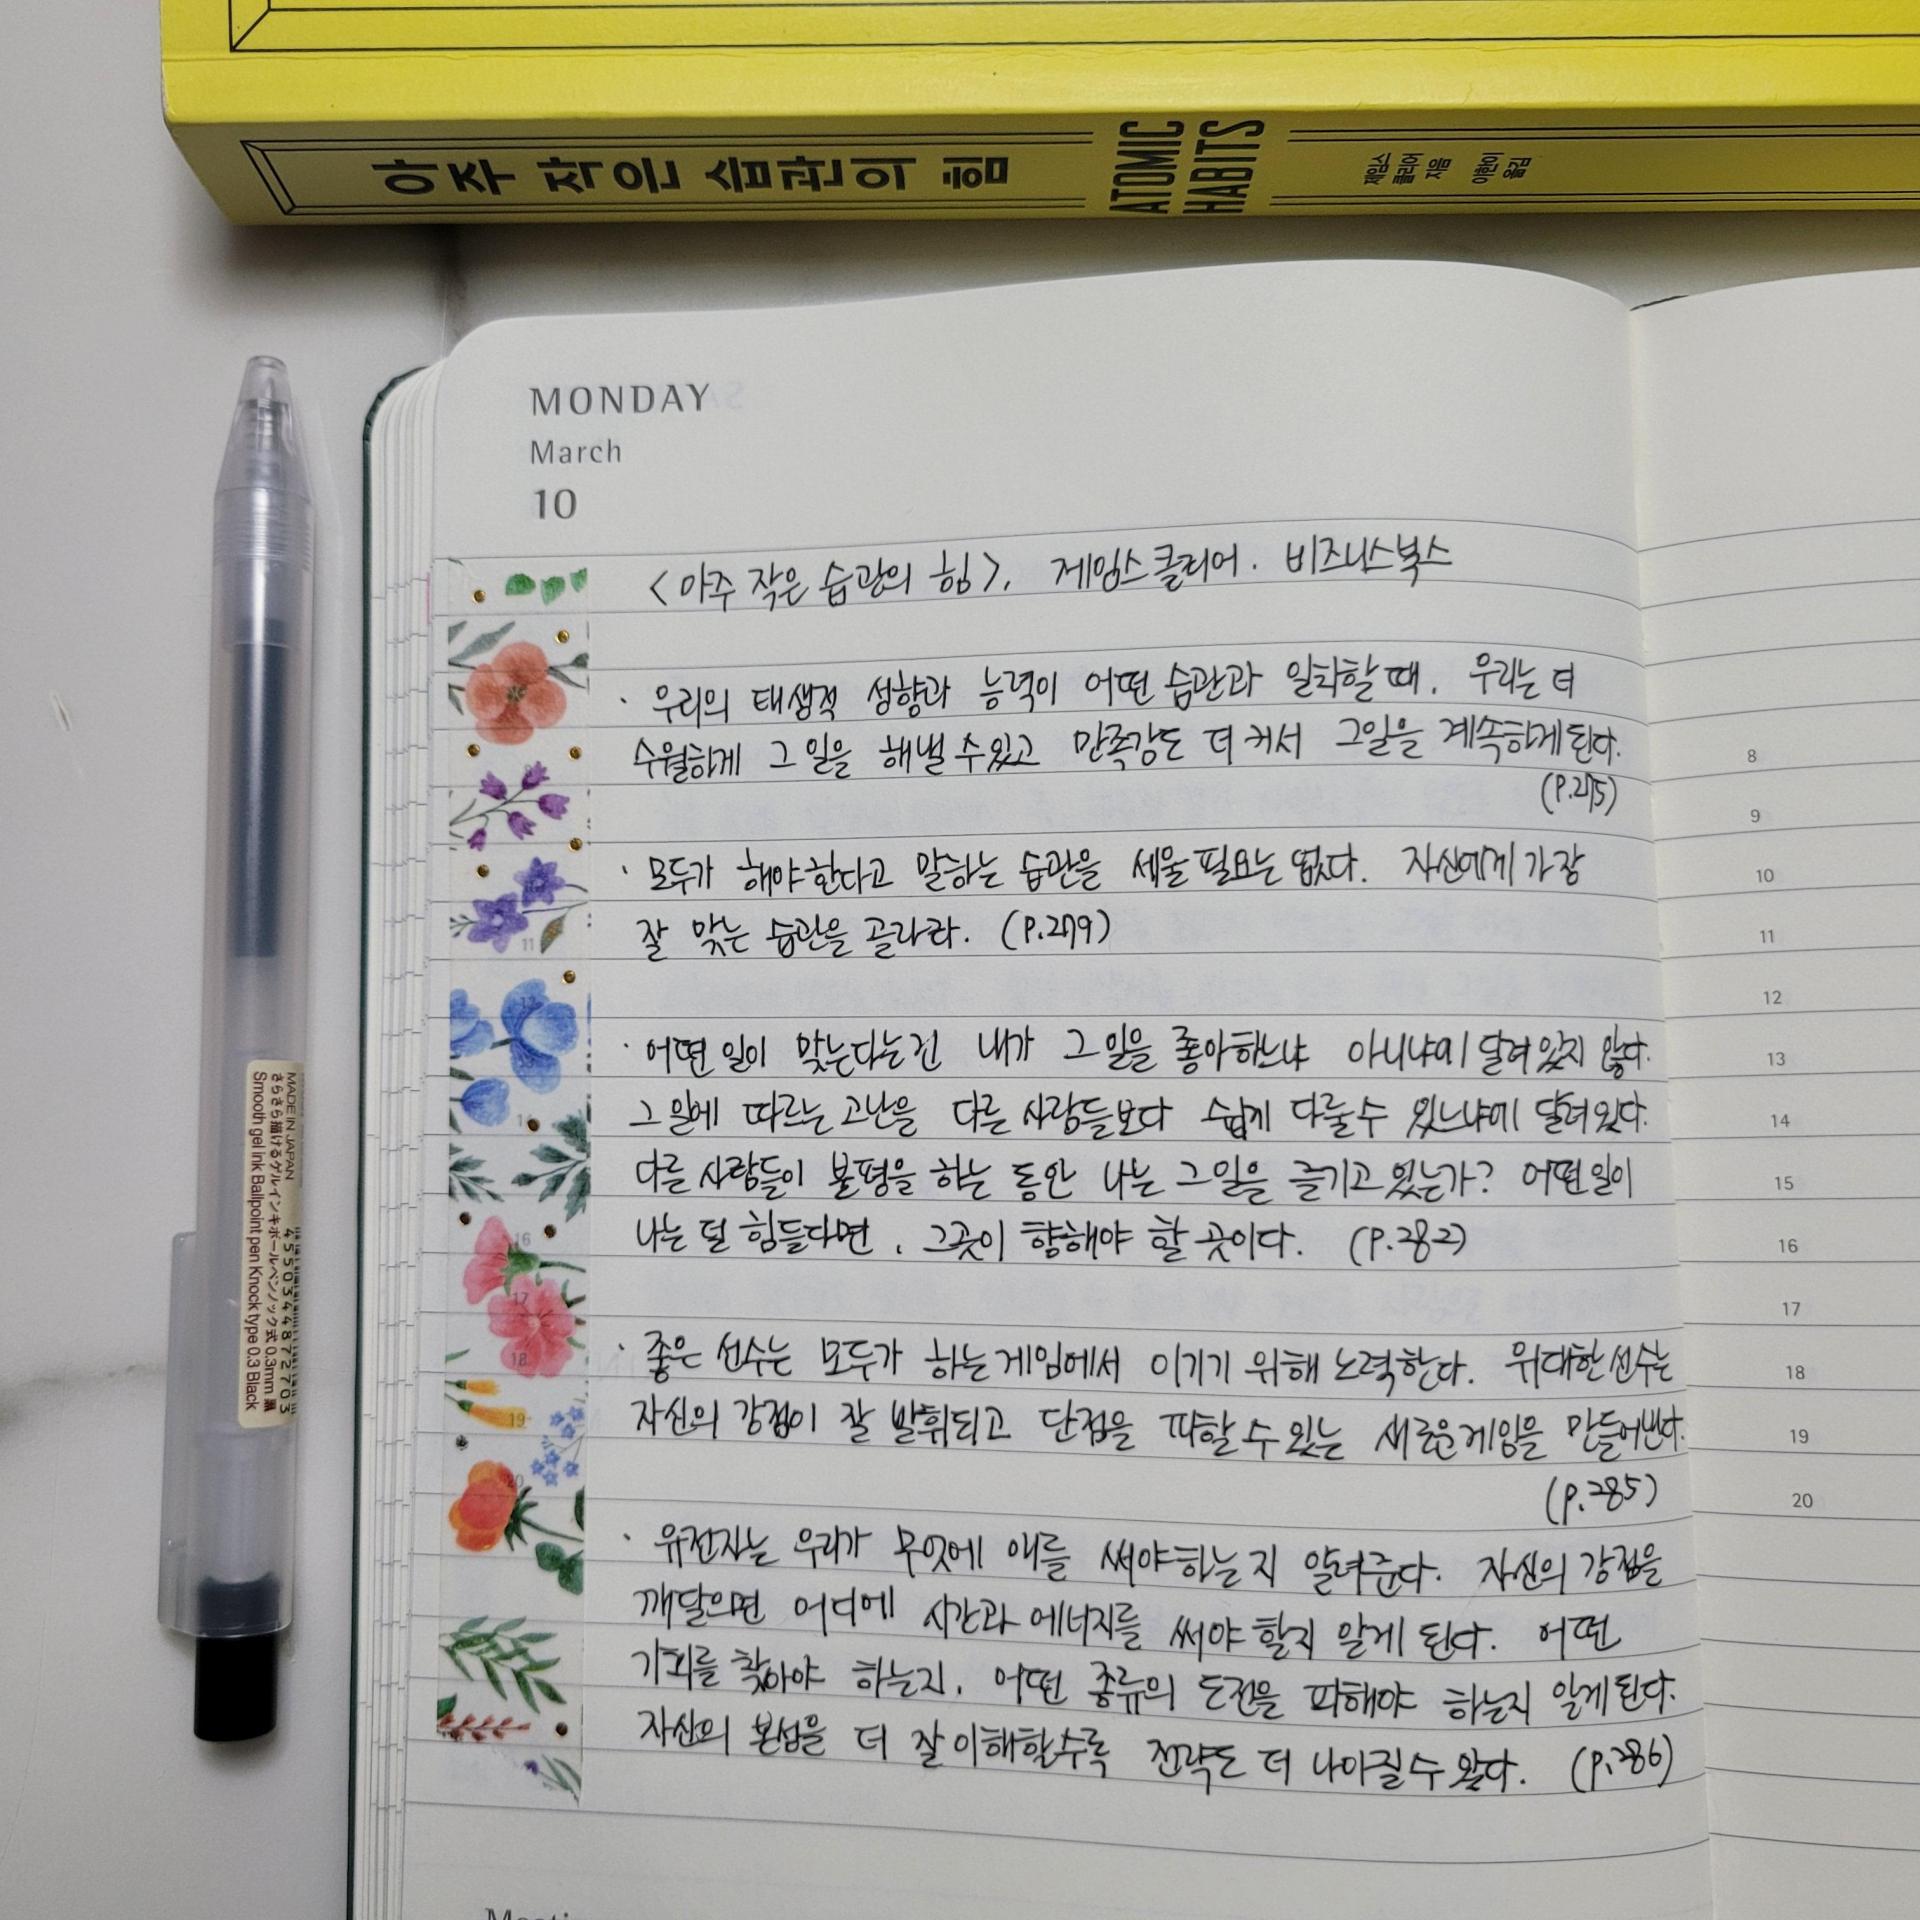 아주 작은 습관의 힘 ATOMIC HABITS 제임스 클리어 지음 이한이 옮김
MONDAY
March
10
<아주 작은 습관의 힘>, 제임스클리어. 비즈니스북스
· 우리의 태생적 성향과 능력이 어떤 습관과 일치할 때, 우리는 더
수월하게 그 일을 해낼 수 있고 만족감도 더 커서 그일을 계속하게 된다.
(P.275)
· 모두가 해야 한다고 말하는 습관을 세울 필요는 없다. 자신에게 가장
잘 맞는 습관을 골라라. (P.279)
· 어떤 일이 맞는다는 건 내가 그 일을 좋아하느냐 아니냐에 달려 있지 않다.
그 일에 따르는 고난을 다른 사람들보다 쉽게 다룰 수 있느냐에 달려 있다.
다른 사람들이 불평을 하는 동안 나는 그 일을 즐기고 있는가? 어떤 일이
나는 덜 힘들다면, 그곳이 향해야 할 곳이다. (P.282)
· 좋은 선수는 모두가 하는 게임에서 이기기 위해 노력한다. 위대한 선수는
자신의 강점이 잘 발휘되고 단점을 피할 수 있는 새로운 게임을 만들어낸다.
(P.285)
· 유전자는 우리가 무엇에 애를 써야 하는지 알려준다. 자신의 강점을
깨달으면 어디에 시간과 에너지를 써야 할지 알게 된다. 어떤
기회를 찾아야 하는지, 어떤 종류의 도전을 피해야 하는지 알게 된다.
자신의 본성을 더 잘 이해할수록 전략도 더 나아질 수 있다. (P.286)
8
9
10
11
12
13
14
15
16
17
18
19
20
MADE IN JAPAN 4550344872703
さらさら描けるゲルインキボールペンノック式 0.3mm 黒
Smooth gel ink Ballpoint pen Knock type 0.3 Black